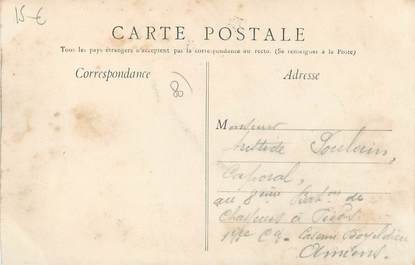 15 €
CARTE POSTALE
Tous les pays étrangers n'acceptent pas la correspondance au recto. (Se renseigner à la Poste)
Correspondance
Adresse
80
Monsieur
Aristide Poulain,
Caporal,
au 8ème Bat^on de
Chasseurs à Pied
1ère Cie Caserne Boyeldieu
Amiens.